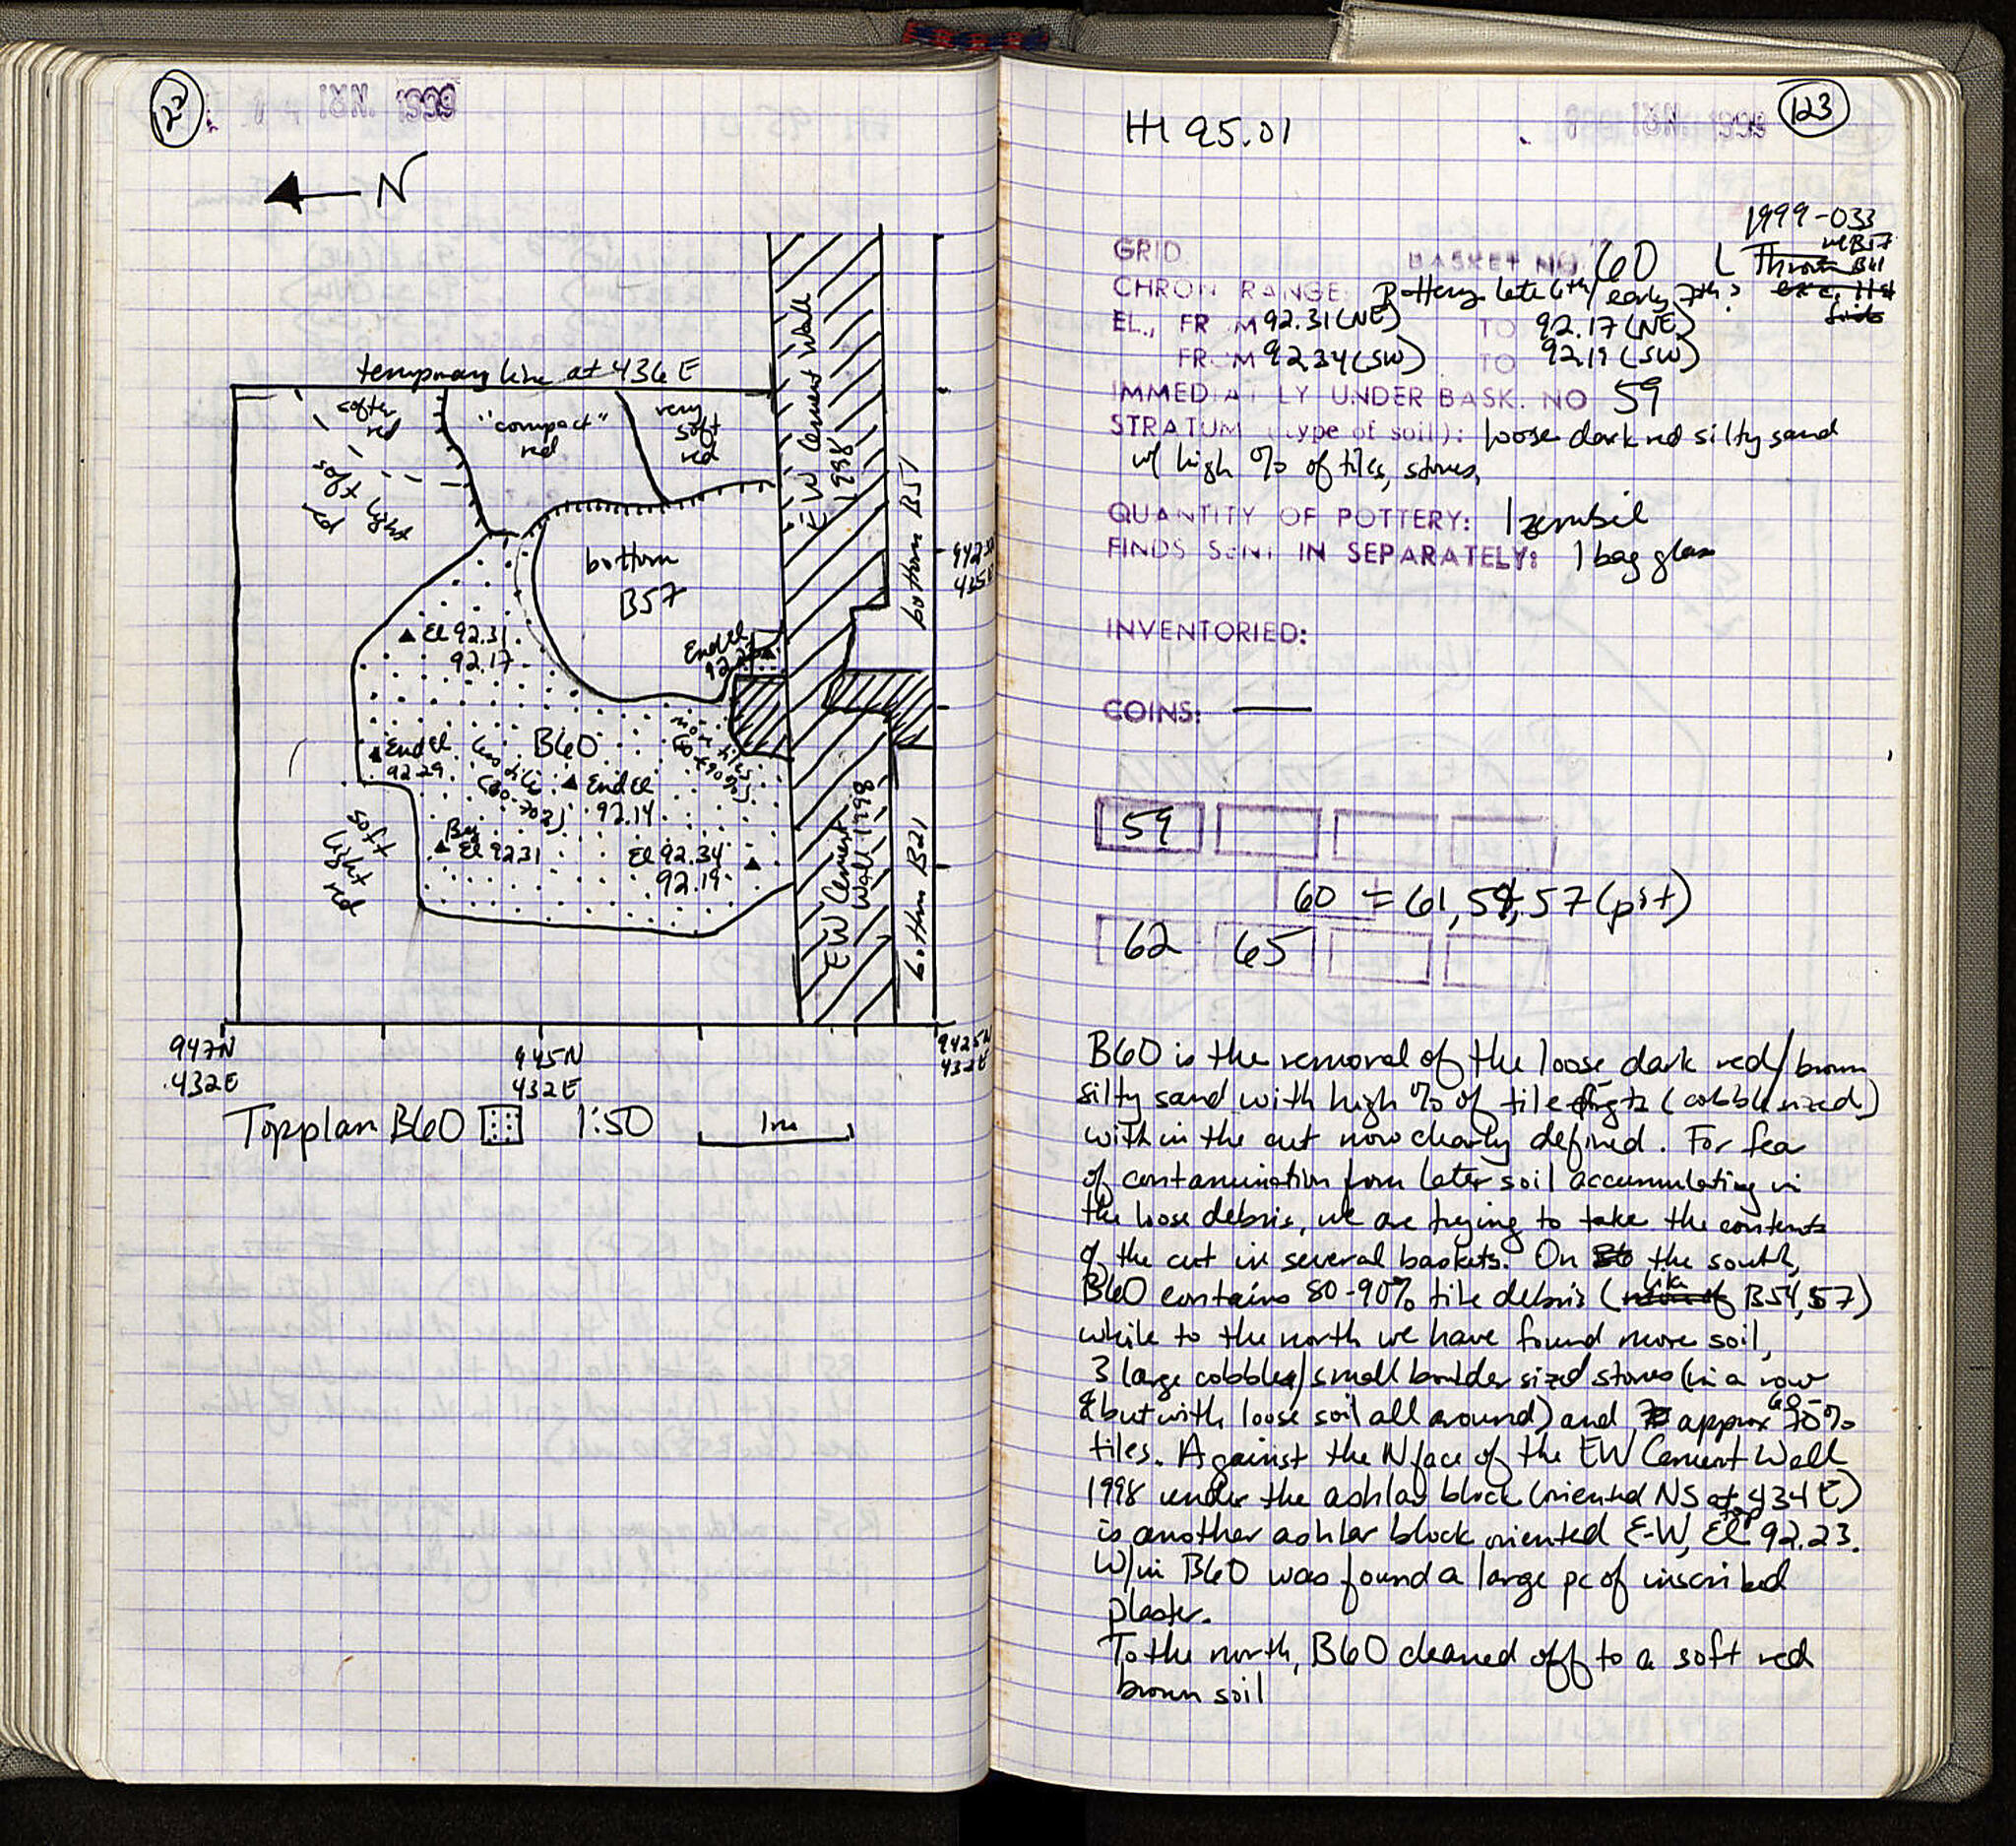 122
JUN. 1999
N
temporary line at 436 E
softer
red
"compact"
red
very
soft
red
soft light
red
EW Cement Wall
1998
bottom B51
bottom
B57
End el
92.23
El 92.31
92.17
B60
End el
92.29
less tile
(60-70%)
more tiles
(80-90%)
End el
92.14
Beg
El 92.31
El 92.34
92.19
soft
light
red
EW Cement
Wall 1998
bottom B21
947N
432E
945N
432E
942.5N
432E
Topplan B60 1:50 1m
123
JUN. 1999
HH 95.01
1999-033
GRID. BASKET NO. 60
CHRON RANGE: Pottery late 6th/early 7th?
EL., FROM 92.31(NE) TO 92.17(NE)
FROM 92.34(SW) TO 92.19(SW)
IMMEDIATELY UNDER BASK. NO 59
STRATUM (type of soil): loose dark red silty sand
w/ high % of tiles, stones,
QUANTITY OF POTTERY: 1 zembil
FINDS SENT IN SEPARATELY: 1 bag glass
INVENTORIED:
COINS: —
59
60 = 61, 54, 57 (pit)
62 65
B60 is the removal of the loose dark red/brown
silty sand with high % of tile frgts (cobble sized)
within the cut now clearly defined. For fear
of contamination from later soil accumulating in
the loose debris, we are trying to take the contents
of the cut in several baskets. On the south,
B60 contains 80-90% tile debris (like B54, 57)
while to the north we have found more soil,
3 large cobbles/small boulder sized stones (in a row
but with loose soil all around) and approx 60-70%
tiles. Against the N face of the EW Cement Wall
1998 under the ashlar block (oriented NS at 434 E)
is another ashlar block oriented E-W, top El 92.23.
W/in B60 was found a large pc of inscribed
plaster.
To the north, B60 cleaned off to a soft red
brown soil